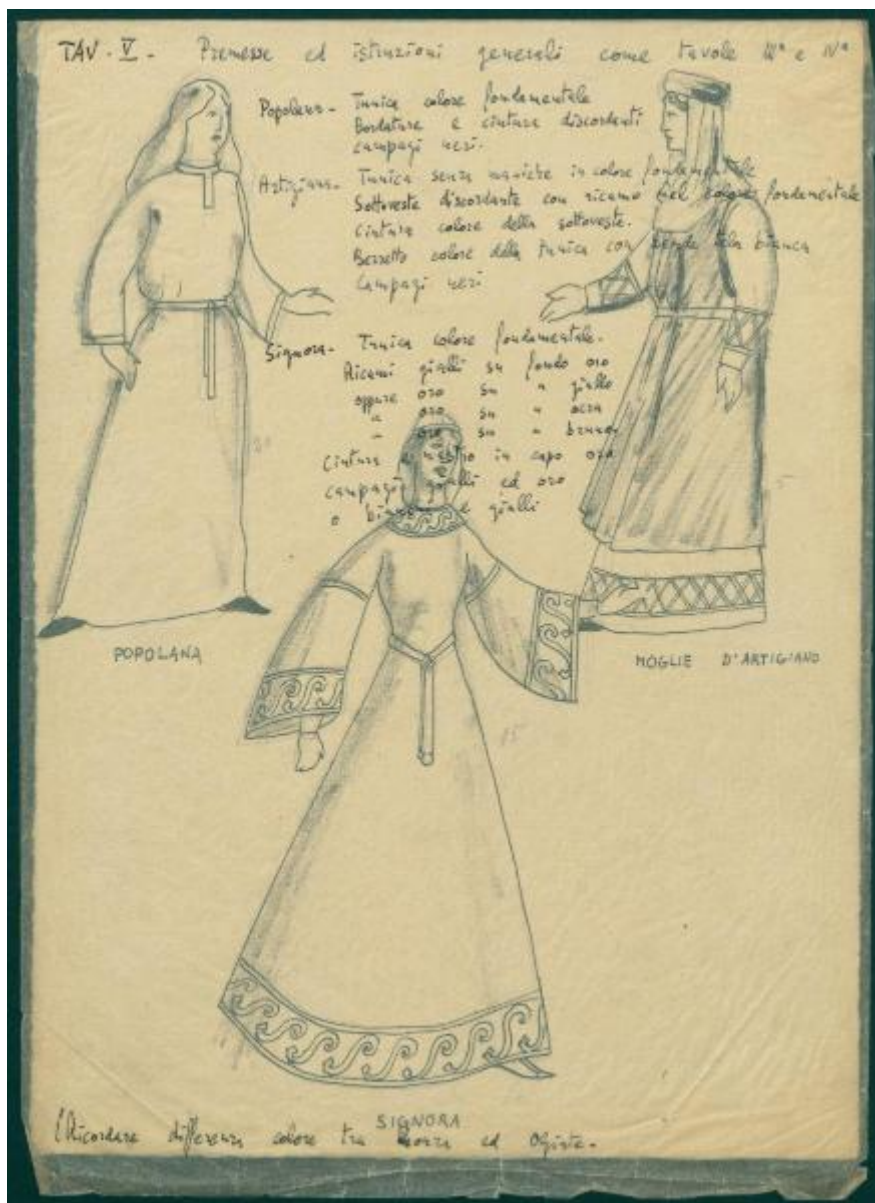 TAV. V. - Premesse ed istruzioni generali come tavole IIIª e IVª
Popolana - Tunica colore fondamentale
Bordature e cinture discordanti
campagi neri.
Artigiana - Tunica senza maniche in colore fondamentale
Sottoveste discordante con ricamo nel colore fondamentale
Cintura colore della sottoveste.
Berretto colore della tunica con bende tela bianca
Campagi neri
Signora - Tunica colore fondamentale.
Ricami gialli su fondo oro
oppure oro su " giallo
" oro su " ocra
" oro su " bruno
Cintura e nastro in capo oro
campagi gialli ed oro
o bianchi e gialli
POPOLANA
MOGLIE D'ARTIGIANO
SIGNORA
(Ricordare differenza colore tra ed